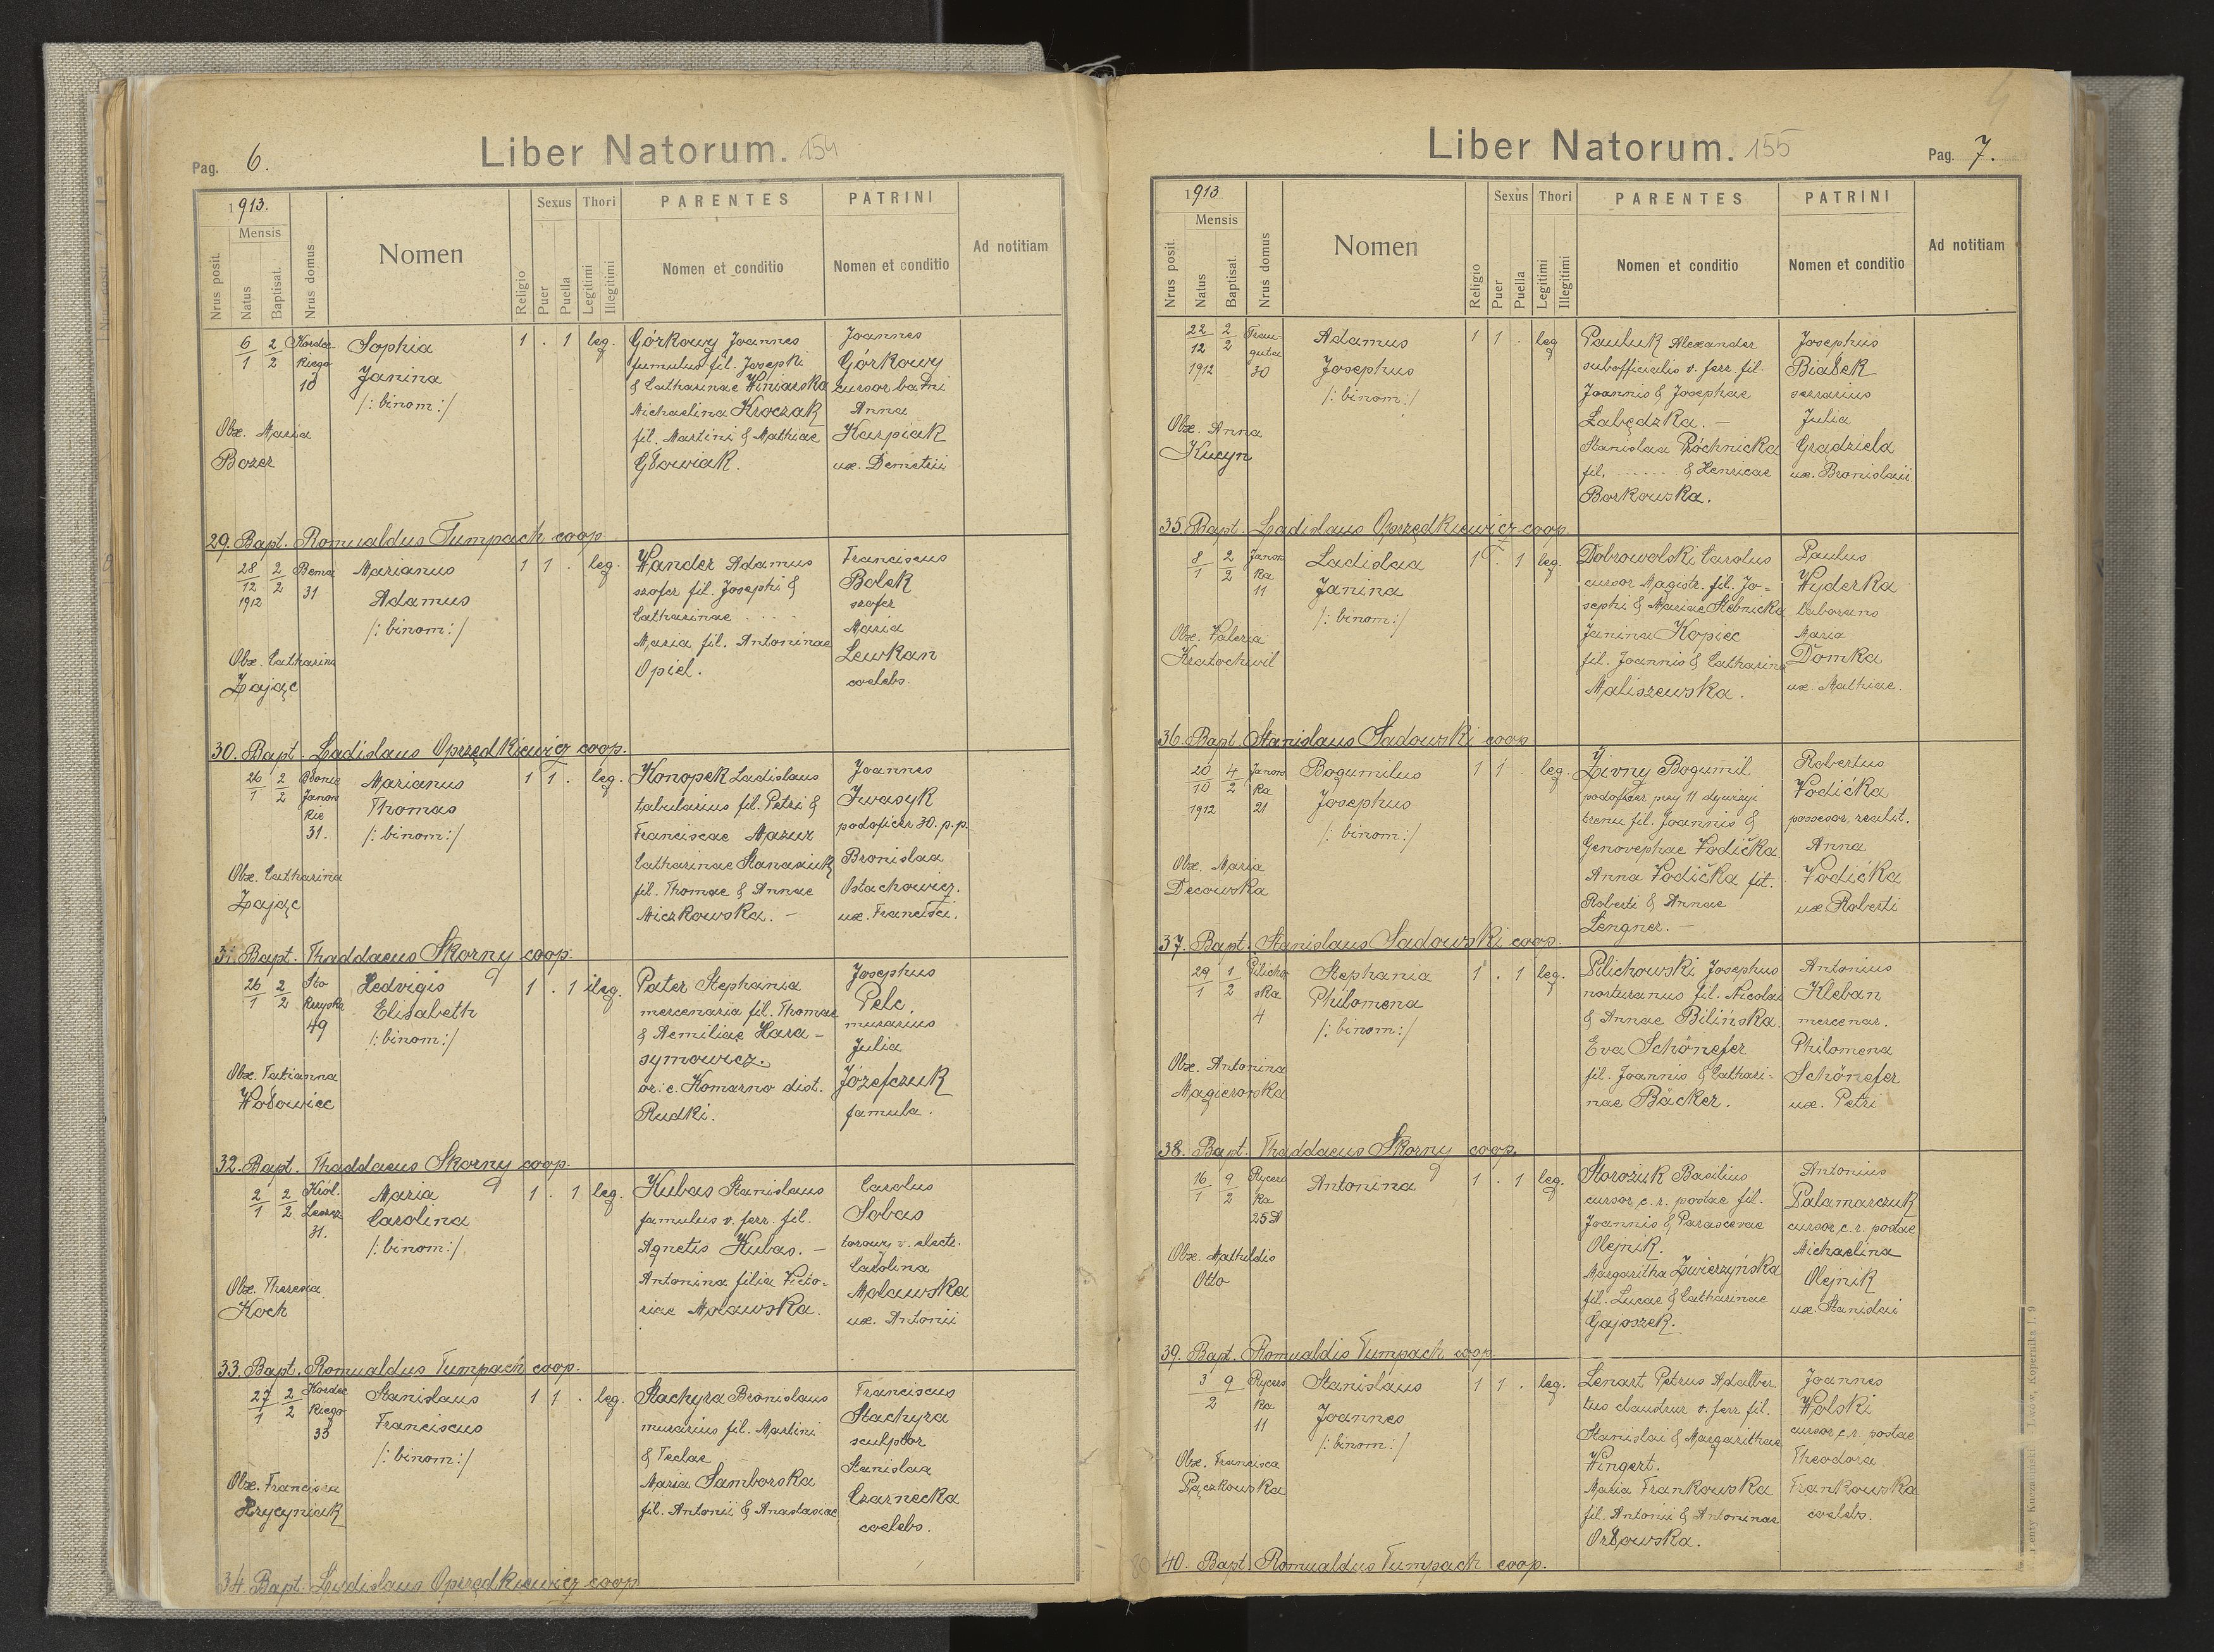 Pag. 6.
Liber Natorum. 154
1913.
Mensis
Nrus posit.
Natus
Baptisat.
Nrus domus
Nomen
Religio
Sexus
Puer
Puella
Thori
Legitimi
Illegitimi
PARENTES
Nomen et conditio
PATRINI
Nomen et conditio
Ad notitiam
6/1 2/2 Kordec
kiego
10
Sophia
Janina
/: binom :/
1 . 1 leg.
Górkowy Joannes
famulus fil. Josephi
& Catharinae Winiarska
Michaelina Kroczak
fil. Martini & Mathiae
Głowiak.
Joannes
Górkowy
cursor bani
Anna
Karpiak
ux. Demetrii
Obx. Maria
Bozer
29. Bapt. Romualdus Tumpach coop.
28/12 1912 2/2 Bema
31
Marianus
Adamus
/: binom :/
1 1 . leg.
Wander Adamus
szofer fil. Josephi &
Catharinae . . . .
Maria fil. Antoninae
Opiel.
Franciscus
Bolek
szofer
Maria
Lewkan
coelebs.
Obx. Catharina
Zając
30. Bapt. Ladislaus Oprzędkiewicz coop.
26/1 2/2 Błonie
Janow
kie
31.
Marianus
Thomas
/: binom :/
1 1 . leg.
Konopek Ladislaus
tabularius fil. Petri &
Franciscae Mazur
Catharinae Stanasiuk
fil. Thomae & Annae
Miczkowska. —
Joannes
Iwasyk
podoficer 30. p.p.
Bronislaa
Ostachowicz.
ux. Francisci.
Obx. Catharina
Zając
31. Bapt. Thaddaeus Skorny coop.
26/1 2/2 Sto
Krzyska
49
Hedvigis
Elisabeth
/: binom :/
1 . 1 ileg.
Pater Stephania
mercenaria fil. Thomae
& Aemiliae Hara-
symowicz.
or. e. Komarno dist.
Rudki.
Josephus
Pelc.
murarius
Julia
Józefczuk
famula.
Obx. Tatianna
Wołowiec
32. Bapt. Thaddaeus Skorny coop.
2/1 2/2 Król.
Leszcz
31.
Maria
Carolina
/: binom :/
1 . 1 leg.
Kubas Stanislaus
famulus v. ferr. fil.
Agnetis Kubas. —
Antonina filia Victo-
riae Moławska.
Carolus
Sobas
torowy v. electr.
Carolina
Moławska
ux. Antonii
Obx. Theresia
Koch
33. Bapt. Romualdus Tumpach coop.
27/1 2/2 Kordec
kiego
33
Stanislaus
Franciscus
/: binom :/
1 1 . leg.
Stachyra Bronislaus
murarius fil. Martini
& Teclae
Maria Samborska
fil. Antonii & Anastasiae
Franciscus
Stachyra
sculptor
Stanislaa
Czarnecka
coelebs.
Obx. Francisca
Hrycyniak
34. Bapt. Ladislaus Oprzędkiewicz coop.
Liber Natorum. 155
Pag. 7.
1913
Mensis
Nrus posit.
Natus
Baptisat.
Nrus domus
Nomen
Religio
Sexus
Puer
Puella
Thori
Legitimi
Illegitimi
PARENTES
Nomen et conditio
PATRINI
Nomen et conditio
Ad notitiam
22/12 1912 2/2 Trau-
guta
30
Adamus
Josephus
/: binom :/
1 1 . leg
Pauluk Alexander
subofficialis v. ferr. fil.
Joannis & Josephae
Łabędzka. —
Stanislaa Próchnicka
fil. . . . . . . & Henricae
Borkowska.
Josephus
Białek
serrarius
Julia
Grądziela
ux. Bronislaii.
Obx. Anna
Kucyn
35. Bapt. Ladislaus Oprzędkiewicz coop.
8/1 2/2 Janow
ka
11
Ladislaa
Janina
/: binom :/
1 . 1 leg.
Dobrowolski Carolus
cursor Magistr. fil. Jo-
sephi & Mariae Stebnicka
Janina Kopiec
fil. Joannis & Catharina
Maliszewska.
Paulus
Wyderka
laborans
Maria
Domka
ux. Mathiae.
Obx. Valeria
Kratochwil
36. Bapt. Stanislaus Sadowski coop.
20/10 1912 4/2 Janow
ka
21
Bogumilus
Josephus
/: binom :/
1 1 . leg.
Živny Bogumil
podoficer przy 11 dywizyi
trenu fil. Joannis &
Genovephae Vodička.
Anna Vodička fil.
Roberti & Annae
Lengner. —
Robertus
Vodićka
possesor realit.
Anna
Vodićka
ux Roberti
Obx. Maria
Decowska
37. Bapt. Stanislaus Sadowski coop.
29/1 1/2 Pilicho
ska
4
Stephania
Philomena
/: binom :/
1 . 1 leg.
Pilichowski Josephus
norturanus fil. Nicolai
& Annae Bilińska.
Eva Schönefer
fil. Joannis & Cathari-
nae Bäcker.
Antonius
Kleban
mercenar.
Philomena
Schönefer
ux. Petri
Obx. Antonina
Magierowska
38. Bapt. Thaddaeus Skorny coop.
16/1 9/2 Rycers
ka
25A
Antonina
1 . 1 leg.
Storożuk Basilius
cursor c. r. postae fil.
Joannis & Parascevae
Olejnik.
Margaritha Zwierzyńska
fil. Lucae & Catharinae
Gajoszek.
Antonius
Palamarczuk
cursor c. r. postae
Michaelina
Olejnik
ux. Stanislai
Obx. Mathildis
Otto
39. Bapt. Romualdis Tumpach coop.
3/2 9 Rycers
ka
11
Stanislaus
Joannes
/: binom :/
1 1 . leg.
Lenart Petrus Adalber
tus claustrur v. ferr fil.
Stanislai & Margarithae
Wingert.
Maria Frankowska
fil. Antonii & Antoninae
Orłowska.
Joannes
Wolski
cursor c. r. postae
Theodora
Frankowska
coelebs.
Obx. Francisca
Pączkowska
40. Bapt. Romualdus Tumpach coop.
Kopernika l. 9